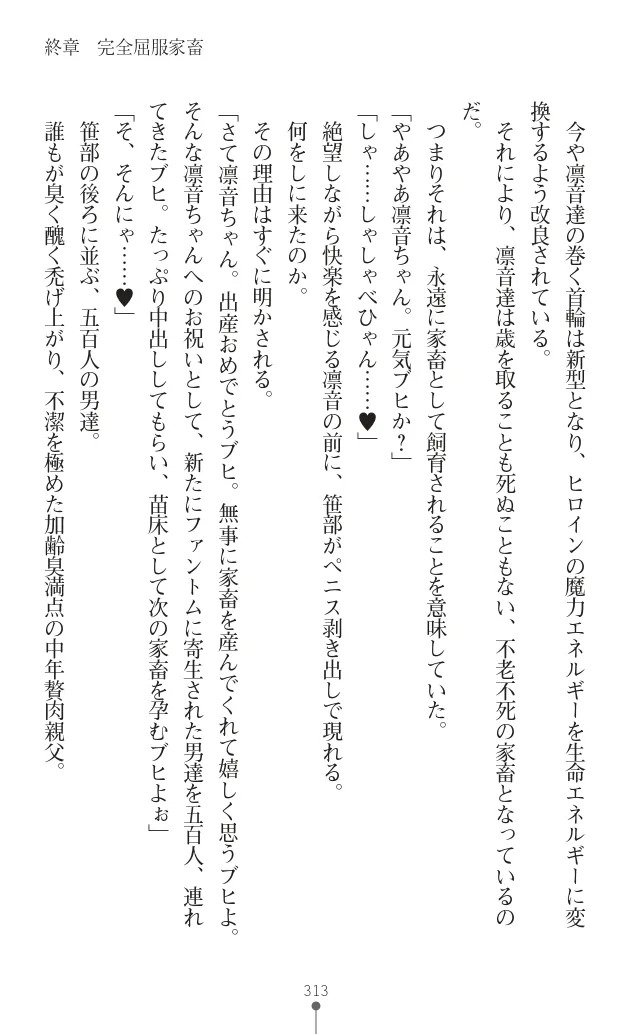 終章　完全屈服家畜
　今や凛音達の巻く首輪は新型となり、ヒロインの魔力エネルギーを生命エネルギーに変
換するよう改良されている。
　それにより、凛音達は歳を取ることも死ぬこともない、不老不死の家畜となっているの
だ。
　つまりそれは、永遠に家畜として飼育されることを意味していた。
「やあやあ凛音ちゃん。元気ブヒか？」
「しゃ……しゃしゃべひゃん……♥」
　絶望しながら快楽を感じる凛音の前に、笹部がペニス剥き出しで現れる。
　何をしに来たのか。
　その理由はすぐに明かされる。
「さて凛音ちゃん。出産おめでとうブヒ。無事に家畜を産んでくれて嬉しく思うブヒよ。
そんな凛音ちゃんへのお祝いとして、新たにファントムに寄生された男達を五百人、連れ
てきたブヒ。たっぷり中出ししてもらい、苗床として次の家畜を孕むブヒよぉ」
「そ、そんにゃ……♥」
　笹部の後ろに並ぶ、五百人の男達。
　誰もが臭く醜く禿げ上がり、不潔を極めた加齢臭満点の中年贅肉親父。
313